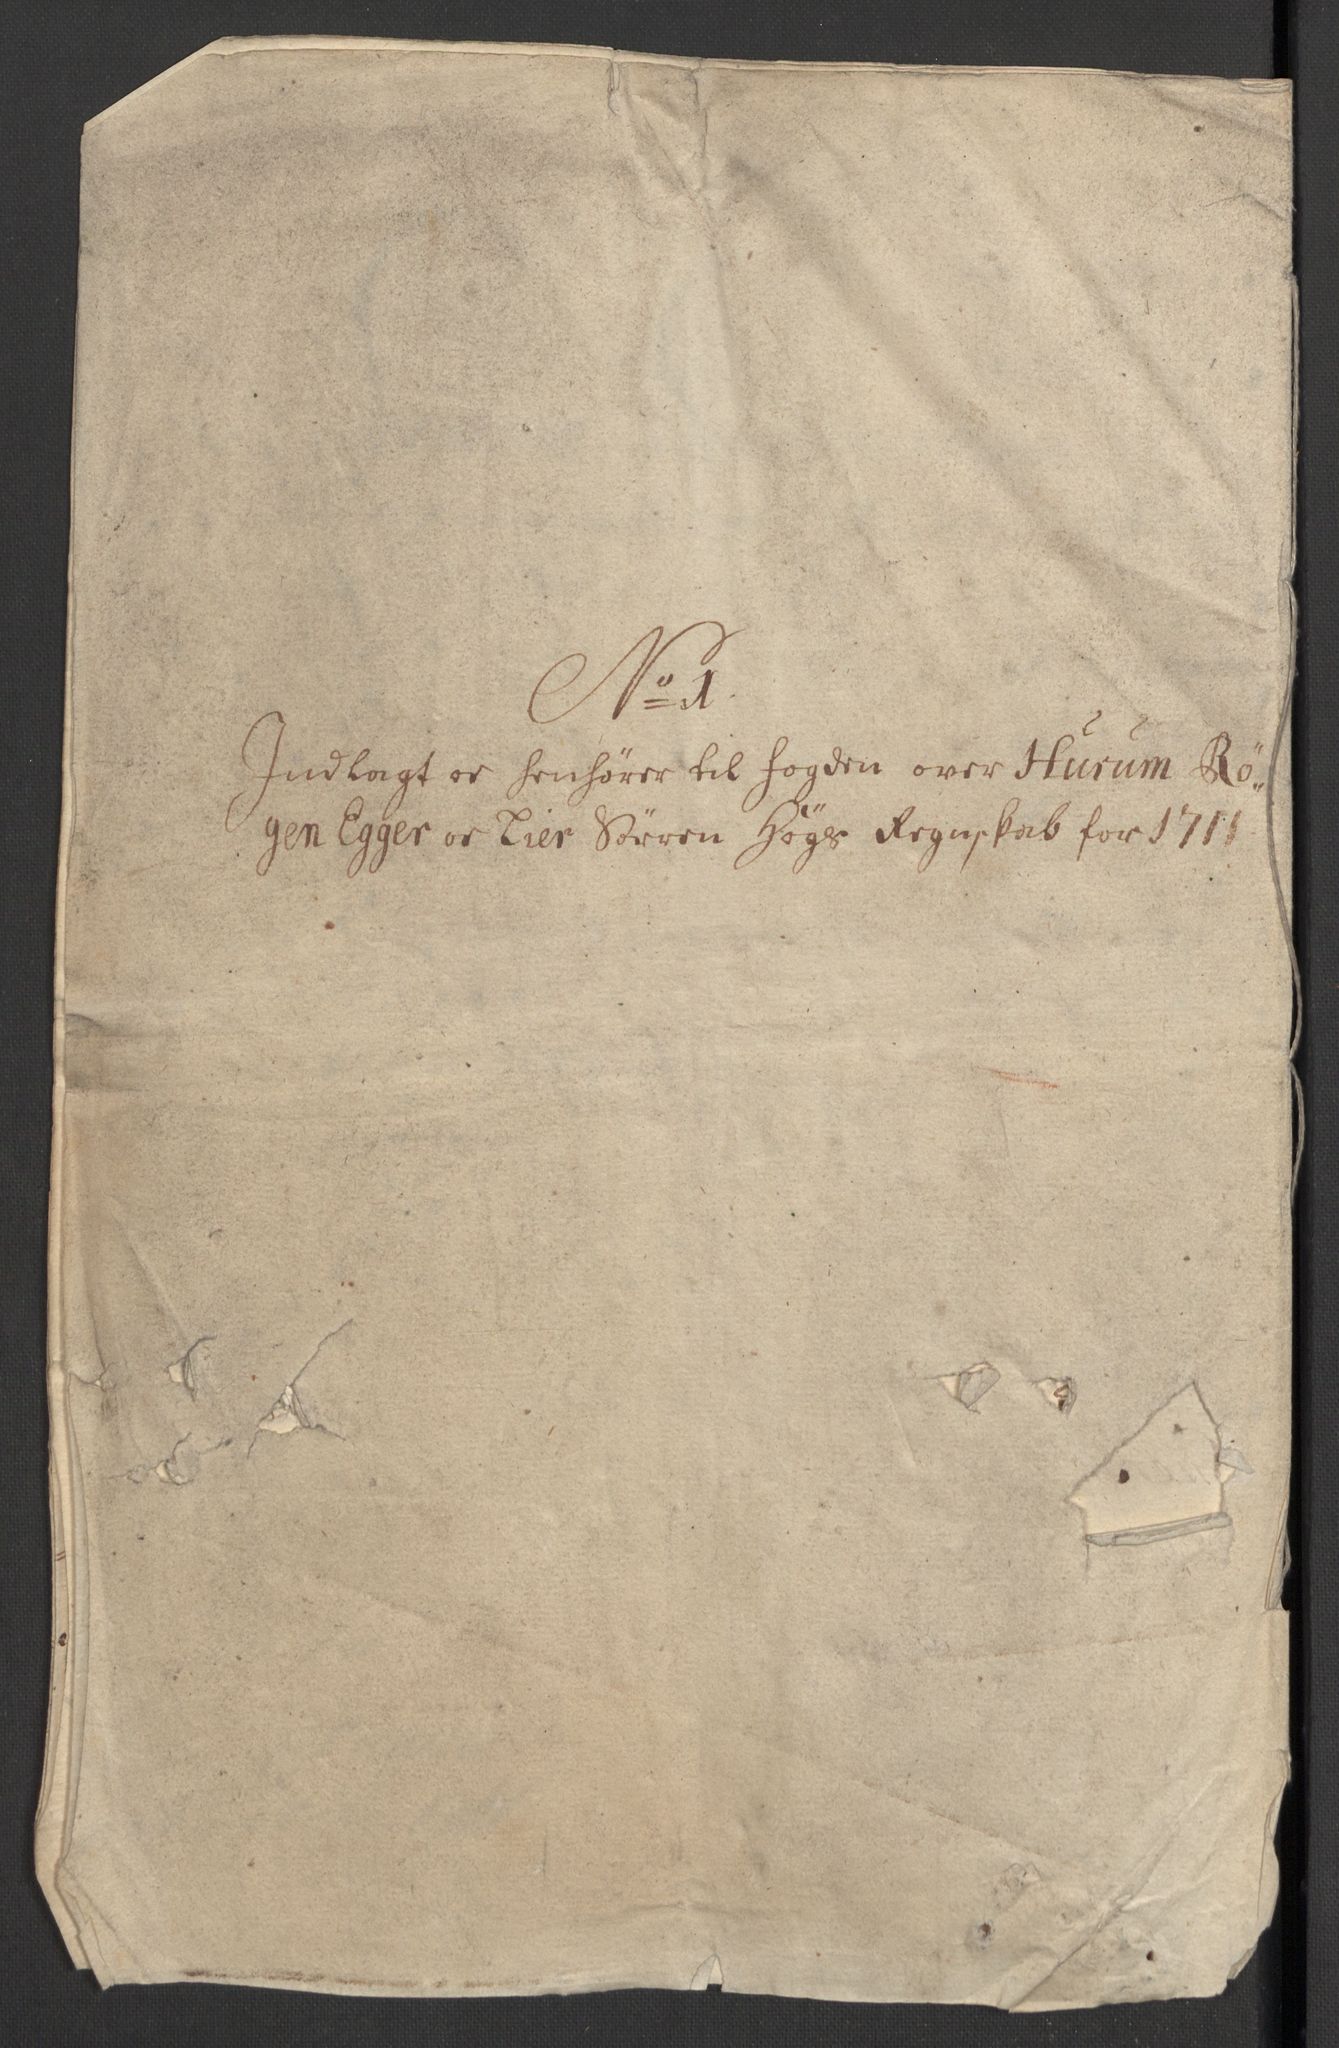 No 1
Indlagt oc henhører til fogden over Hurum Rö-
gen Egger oc Lier Sörren Högs Regnskab for 1711